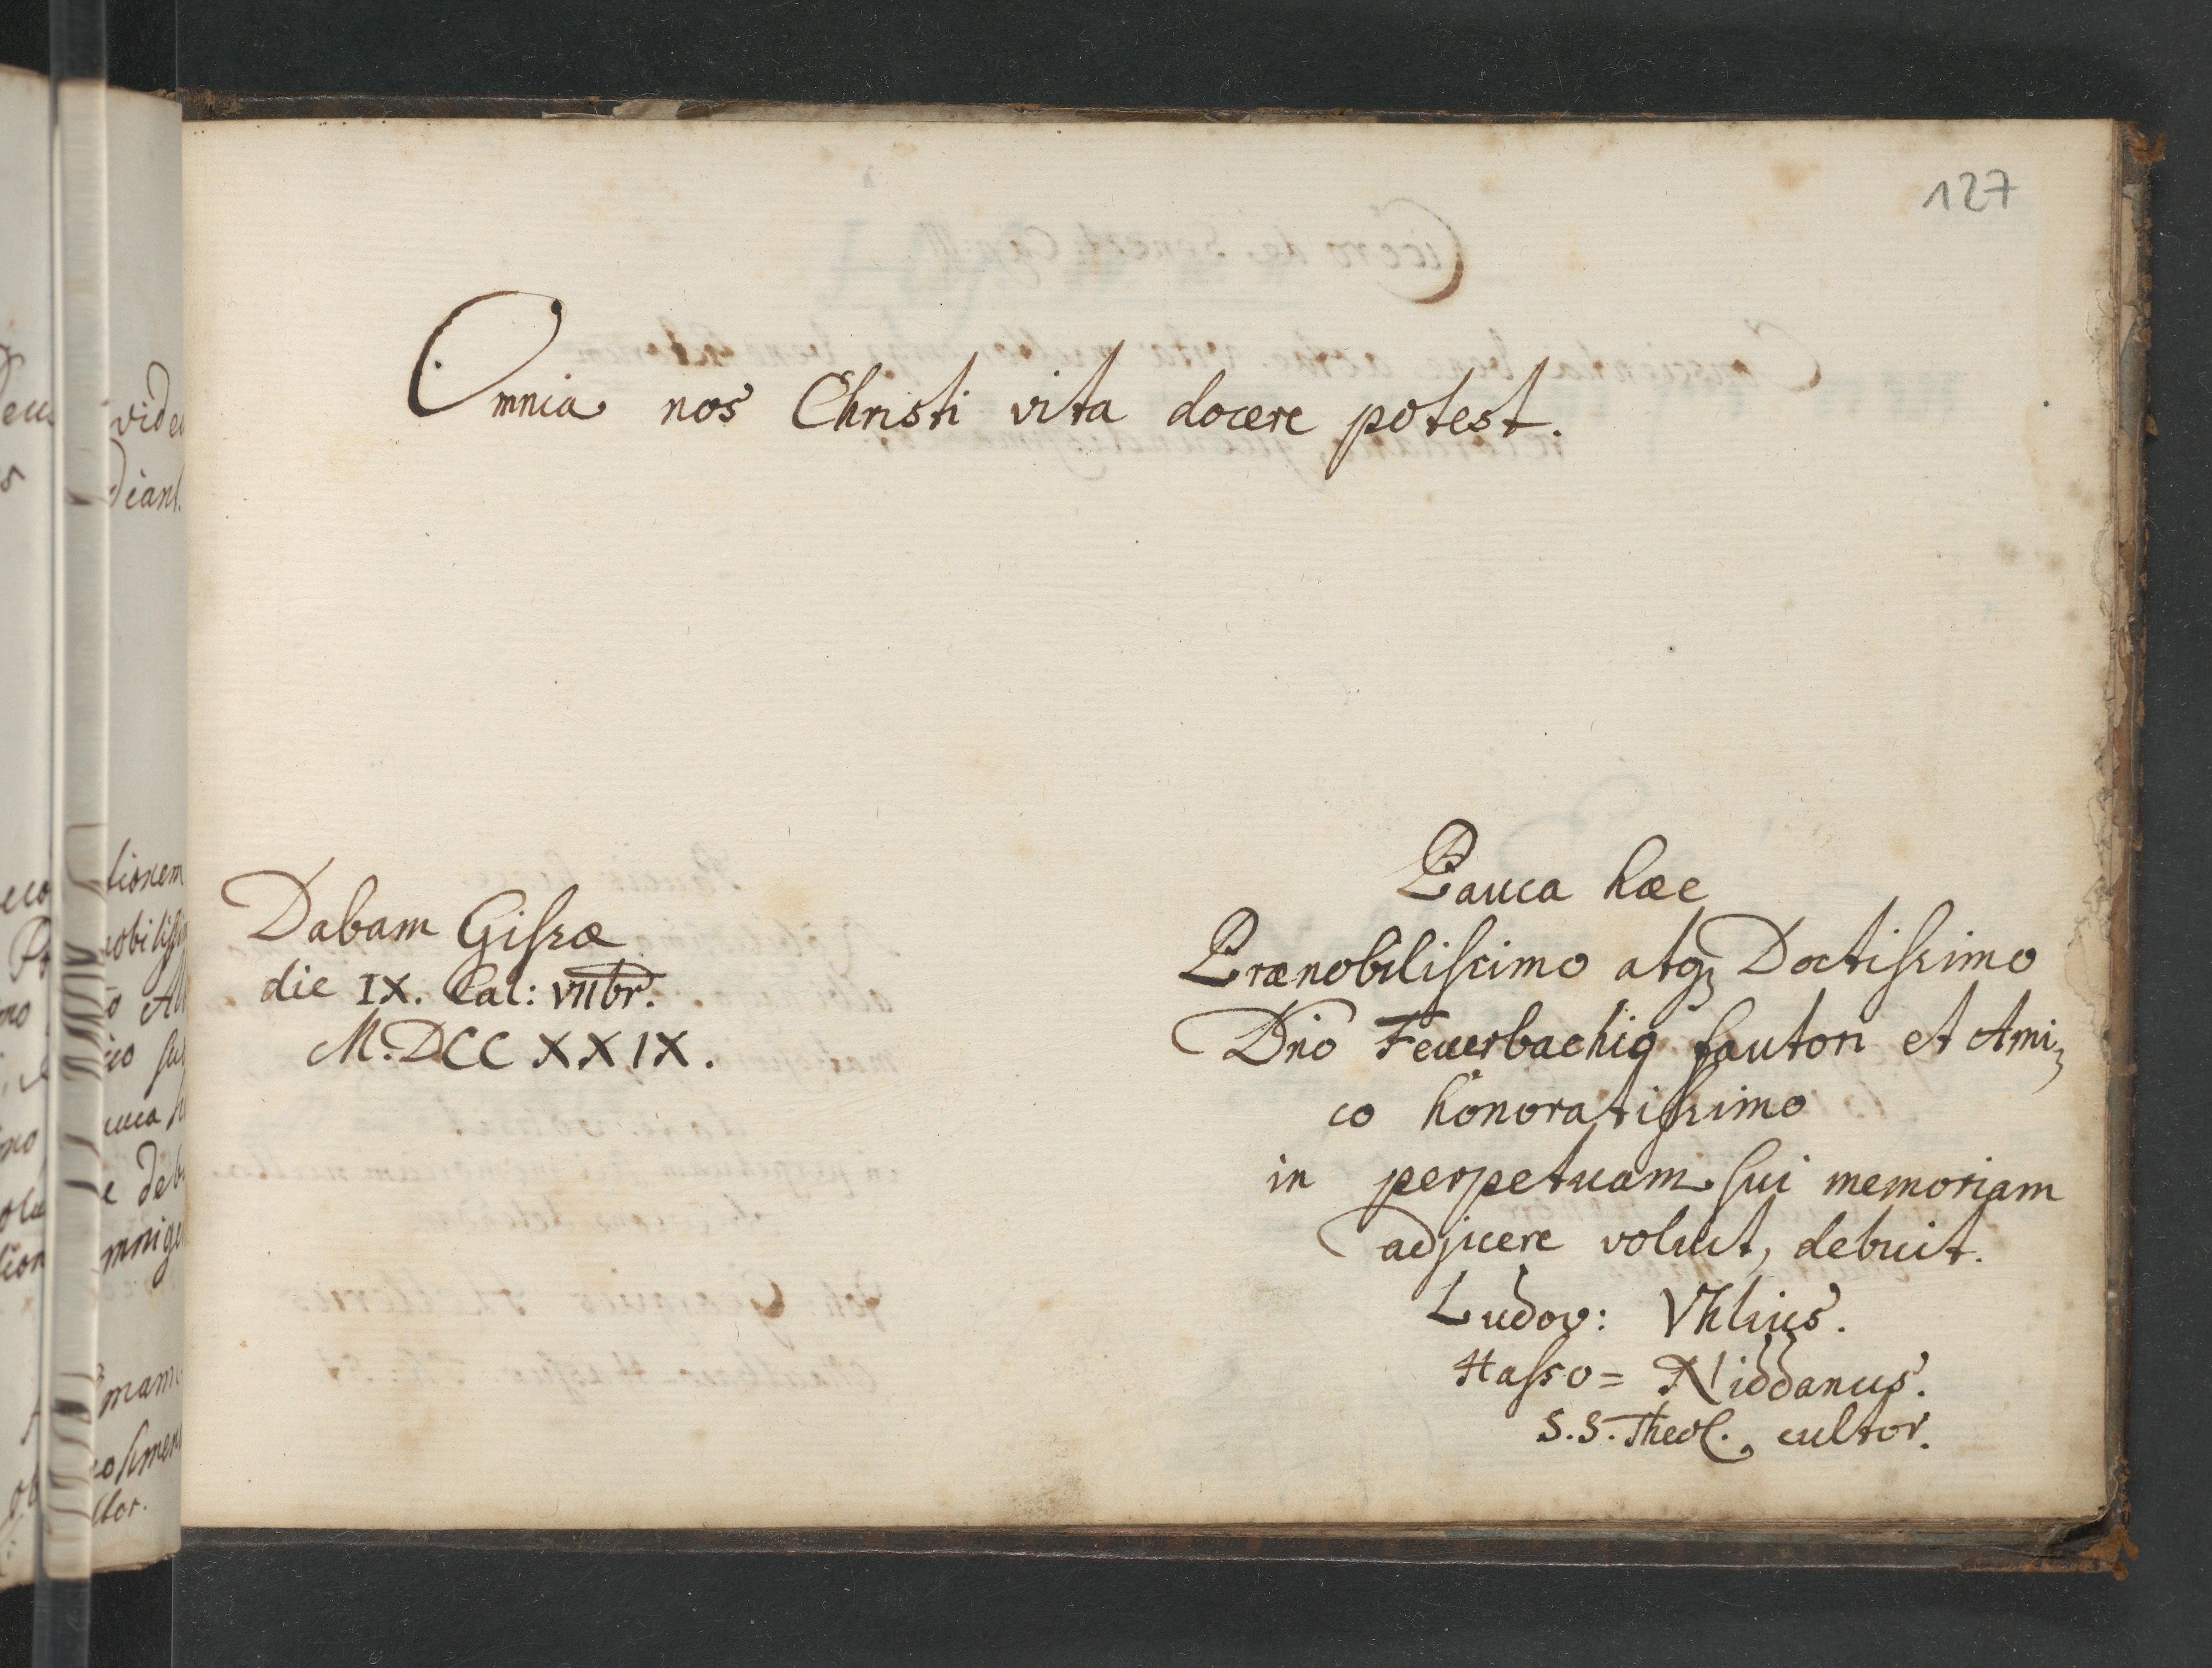 127
Omnia nos Christi vita docere potest.
Dabam Gissæ
die IX. Cal: VIIbr.
M.DCCXXIX.
Pauca hæc
Prænobilissimo atq₃ Doctissimo
Dn̄o Feuerbachio fautori et Ami⸗
co honoratissimo
in perpetuam sui memoriam
adjicere voluit, debuit.
Ludov: Vhlius.
Hasso= Niddanus.
S.S. Theol. cultor.